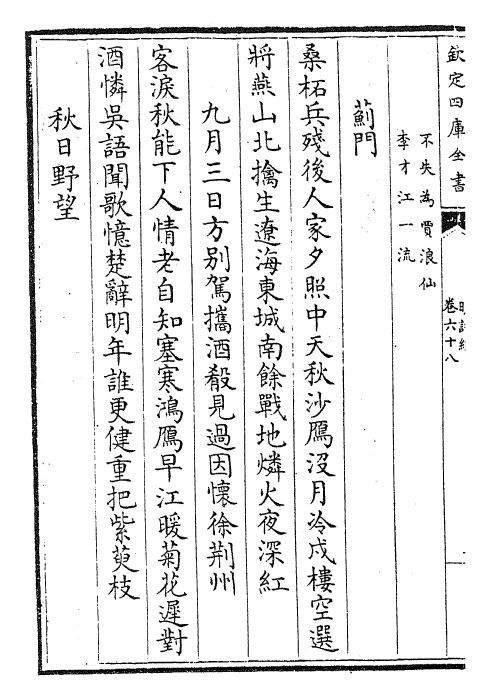 欽定四庫全書
明詩綜
卷六十八
不失為賈浪仙
李才江一流
薊門
桑柘兵殘後人家夕照中天秋沙鴈沒月冷戍樓空選
將燕山北擒生遼海東城南餘戰地燐火夜深紅
九月三日方别駕攜酒殽見過因懷徐荆州
客淚秋能下人情老自知塞寒鴻鴈早江暖菊花遲對
酒憐吳語聞歌憶楚辭明年誰更健重把紫萸枝
秋日野望